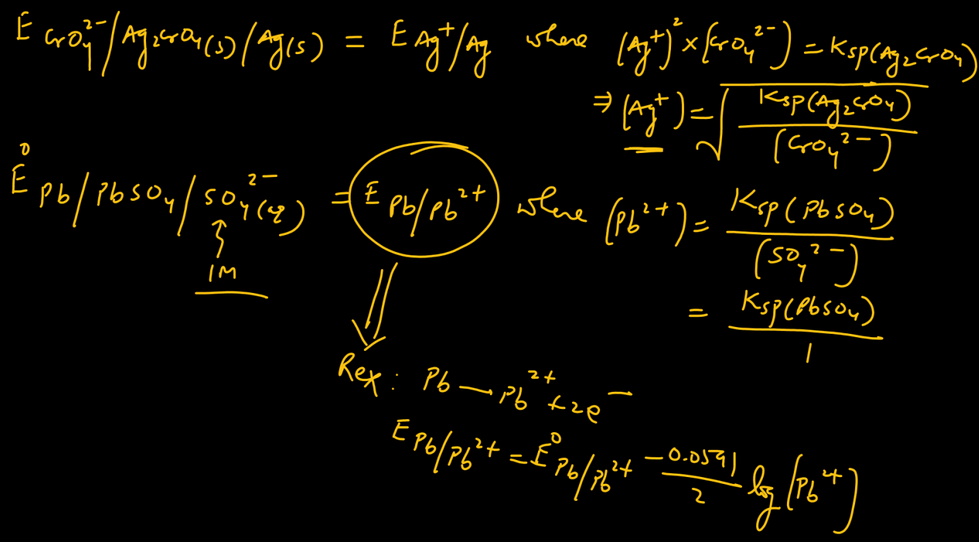 E CrO₄²⁻/Ag₂CrO₄(s)/Ag(s) = E Ag⁺/Ag where [Ag⁺]² × [CrO₄²⁻] = Ksp(Ag₂CrO₄)
⇒ [Ag⁺] = √(Ksp(Ag₂CrO₄) / [CrO₄²⁻])
E⁰ Pb/PbSO₄/SO₄²⁻(aq) = E Pb/Pb²⁺ where [Pb²⁺] = Ksp(PbSO₄) / [SO₄²⁻]
1M
= Ksp(PbSO₄) / 1
Rex : Pb → Pb²⁺ + 2e⁻
E Pb/Pb²⁺ = E⁰ Pb/Pb²⁺ − 0.0591/2 log [Pb²⁺]